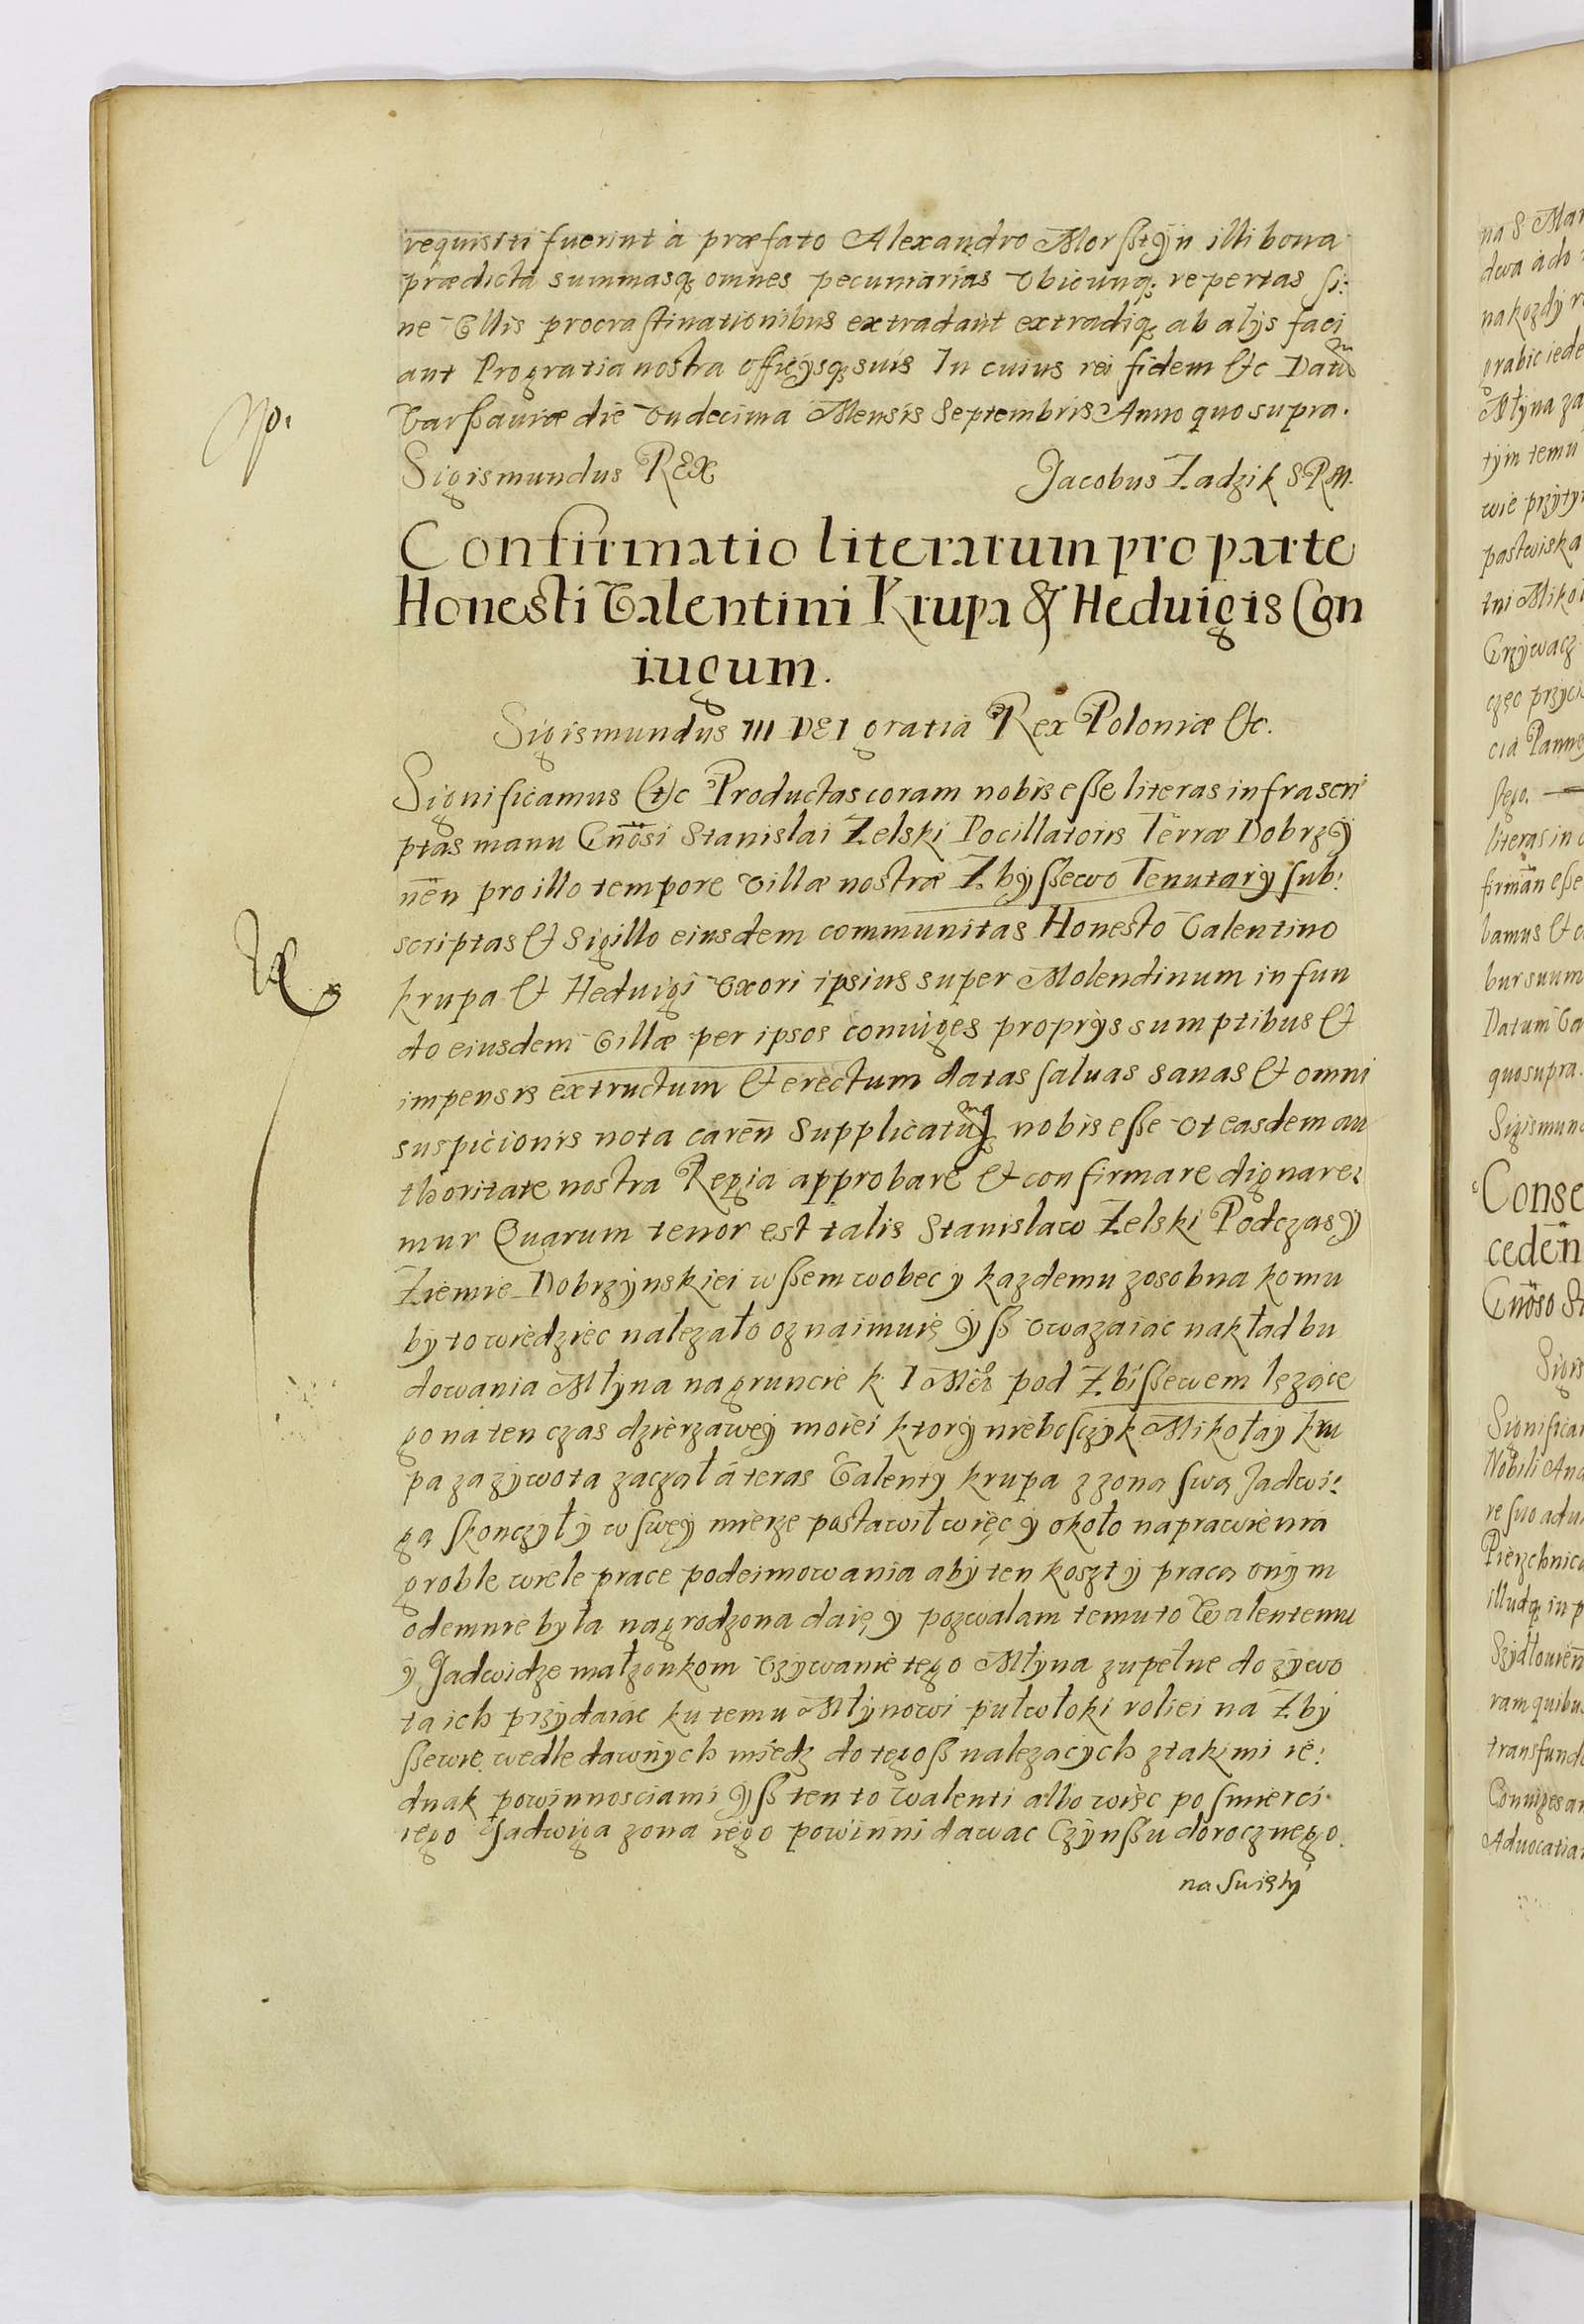 requisiti fuerint à præfato Alexandro Morßtÿn illi bona
prædicta summasq; omnes pecuniarias Vbicunq; repertas si:
ne Vllis procrastinationibus extradant extradiq; ab alÿs faci
ant Pro gratia nostra officÿsq; suis In cuius rei fidem &c Datũ
Varßaviæ die Vndecima Mensis Septembris Anno quo supra.
Sigismundus REX
Jacobus Zadzik SRM.
Confirmatio literarum pro parte
Honesti Valentini Krupa & Heduigis Con
iugum.
Sigismundus III DEI gratia Rex Poloniæ &c.
Significamus &c Productas coram nobis esse literas infrascri
ptas manu Gnõsi Stanislai Zelski Pocillatoris Terræ Dobrzÿ
nẽn pro illo tempore Villæ nostræ Zbÿßewo Tenutarÿ sub:
scriptas & Sigillo eiusdem communitas Honesto Valentino
Krupa & Heduigi Vxori ipsius super Molendinum in fun
do eiusdem Villæ per ipsos coniuges proprÿs sumptibus &
impensis extructum & erectum datas saluas sanas & omni
suspicionis nota careñ Supplicatumq; nobis esse Vt easdem au
thoritate nostra Regia approbare & confirmare dignare:
mur Quarum tenor est talis Stanislaw Zelski Podczasÿ
Ziemie Dobrzÿnskiei wßem wobec y kazdemu zosobna komu
by to wiedziec nalezało oznaimuię ÿß Vwazaiac nakład bu
dowania Młyna na gruncie k I Mci pod Zbißewem lezące
go na ten czas dzierzawey moiei ktorÿ nieboszczÿk Mikołaÿ kru
pa za zÿwota zaczał á teras Valenty krupa z zoną swą Jadwi:
gą skonczÿł ÿ w sweÿ mierze postawił więc ÿ około naprawienia
groble wiele prace podeimowania abÿ ten koszt ÿ praca onÿm
odemnie była nagrodzona daię y pozwalam temu to Walentemu
ÿ Jadwidze małzonkom Vzÿwanie tego Młyna zupełne do zÿwo
ta ich przÿdaiac ku temu Młÿnowi pułwłoki roliei na Zbÿ
ßewie wedle dawnÿch miedz do tegoß nalezacych z takimi ie:
dnak powinnosciami ÿß ten to Walenti albo więc po smierci
iego Jadwiga zona iego powinni dawac Czÿnßu dorocznego
na Swięty